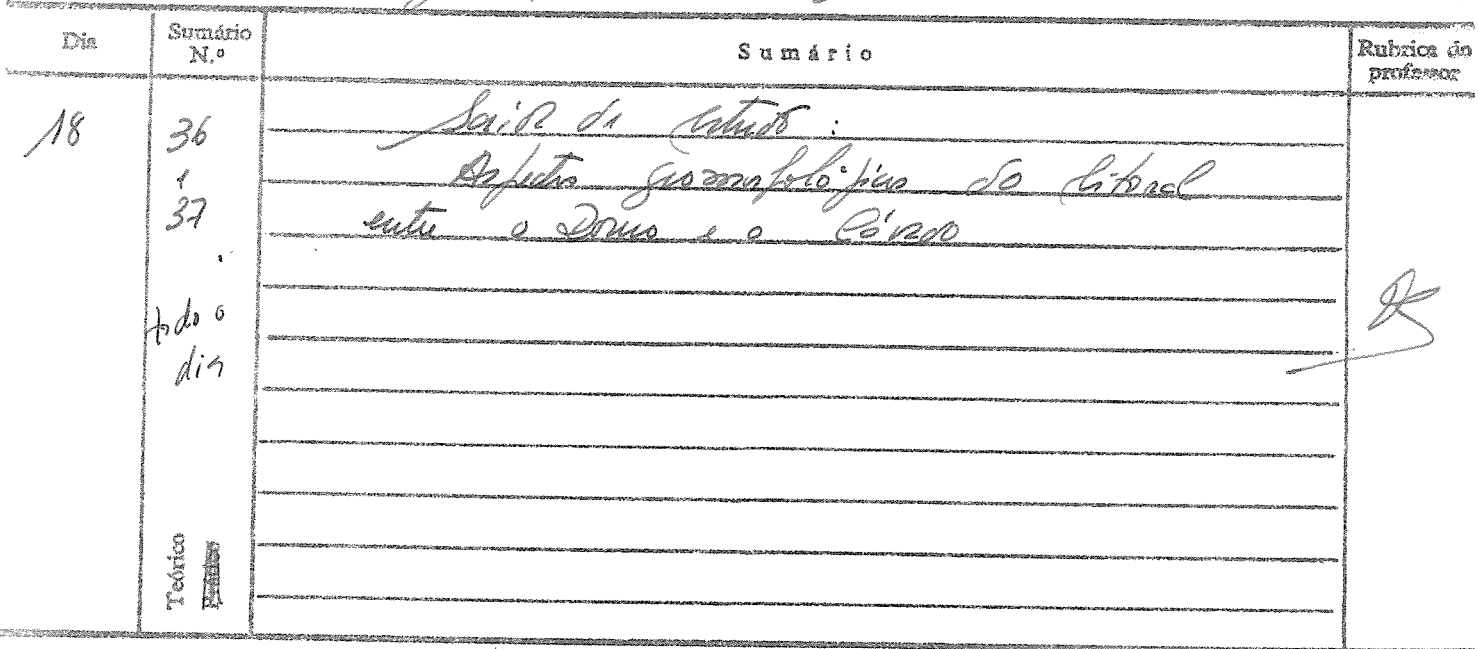 Dia
Sumário N.º
Sumário
Rubrica do professor
18
36
37
todo o
dia
Saída de estudo :
Aspectos geomorfológicos do litoral
entre o Douro e o Cávado
Teórico